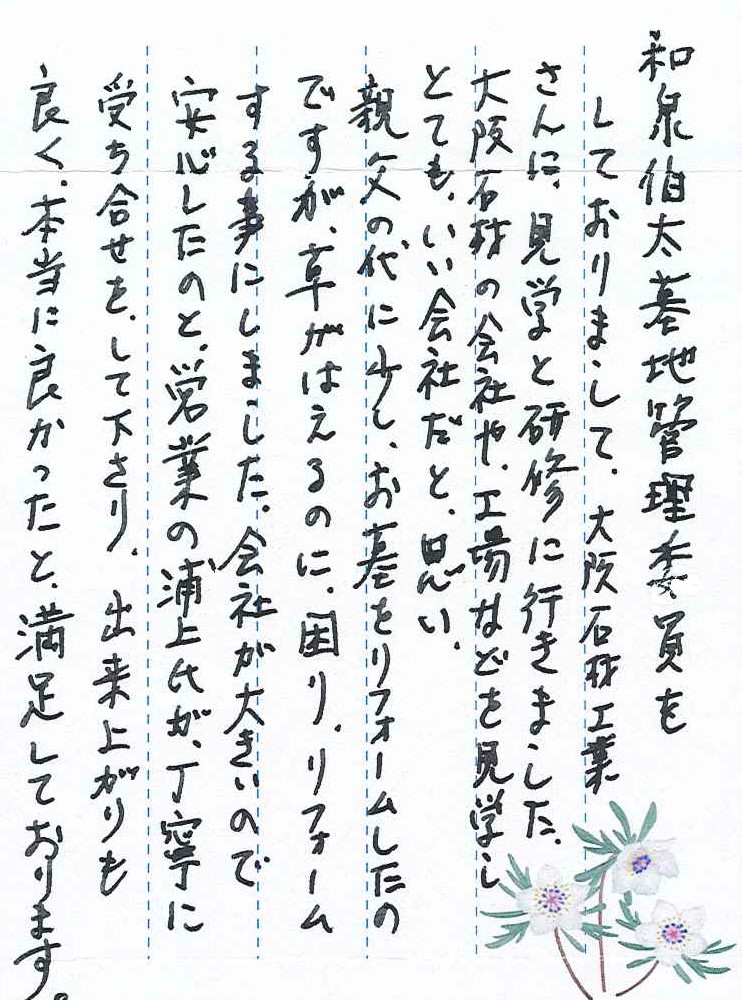 和泉伯太墓地管理委員を
しておりまして、大阪石材工業
さんに、見学と研修に行きました。
大阪石材の会社や、工場などを見学し
とても、いい会社だと、思い、
親父の代に少し、お墓をリフォームしたの
ですが、草がはえるのに、困り、リフォーム
する事にしました。会社が大きいので
安心したのと、営業の浦上氏が、丁寧に
受ち合せを、して下さり、出来上がりも
良く、本当に良かったと、満足しております。